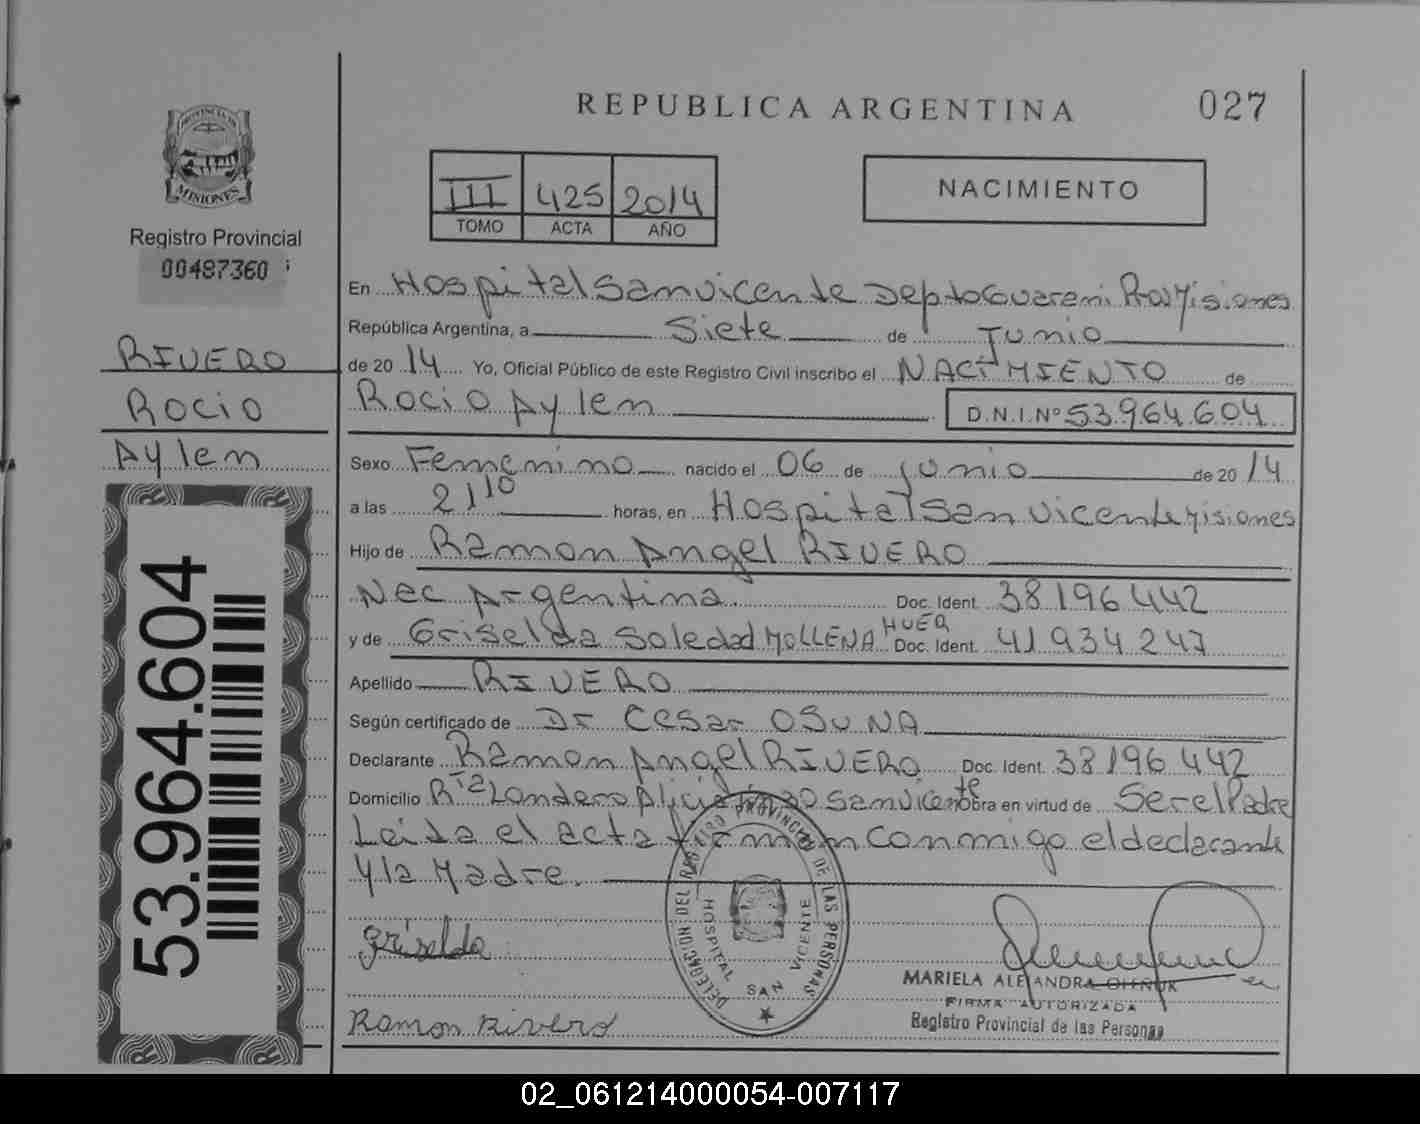 REPUBLICA ARGENTINA
027
PROVINCIA DE
MISIONES
Registro Provincial
00487360
III 425 2014
TOMO ACTA AÑO
NACIMIENTO
RIVERO
Rocio
Aylen
53.964.604
En Hospital San Vicente Depto Guarani Pcia Misiones
República Argentina, a Siete de Junio
de 2014 Yo, Oficial Público de este Registro Civil inscribo el NACIMIENTO de
Rocio Aylen D.N.I.Nº 53.964.604
Sexo Femenino nacido el 06 de junio de 2014
a las 21 10 horas, en Hospital San Vicente Misiones
Hijo de Ramon Angel RIVERO
Nac Argentina Doc. Ident. 38196442
y de Griselda Soledad Doc. Ident. 41934247
Apellido RIVERO
Según certificado de Dr Cesar OSUNA
Declarante Ramon Angel RIVERO Doc. Ident. 38196442
Domicilio Rta Landero Alicia San Vicente Obra en virtud de Ser el Padre
Leida el acta firman conmigo el declarante
y la Madre.
griselda
Ramon Rivero
DELEGACION DEL REGISTRO PROVINCIAL DE LAS PERSONAS
HOSPITAL SAN VICENTE
MARIELA ALEJANDRA
FIRMA AUTORIZADA
Registro Provincial de las Personas
02_061214000054-007117